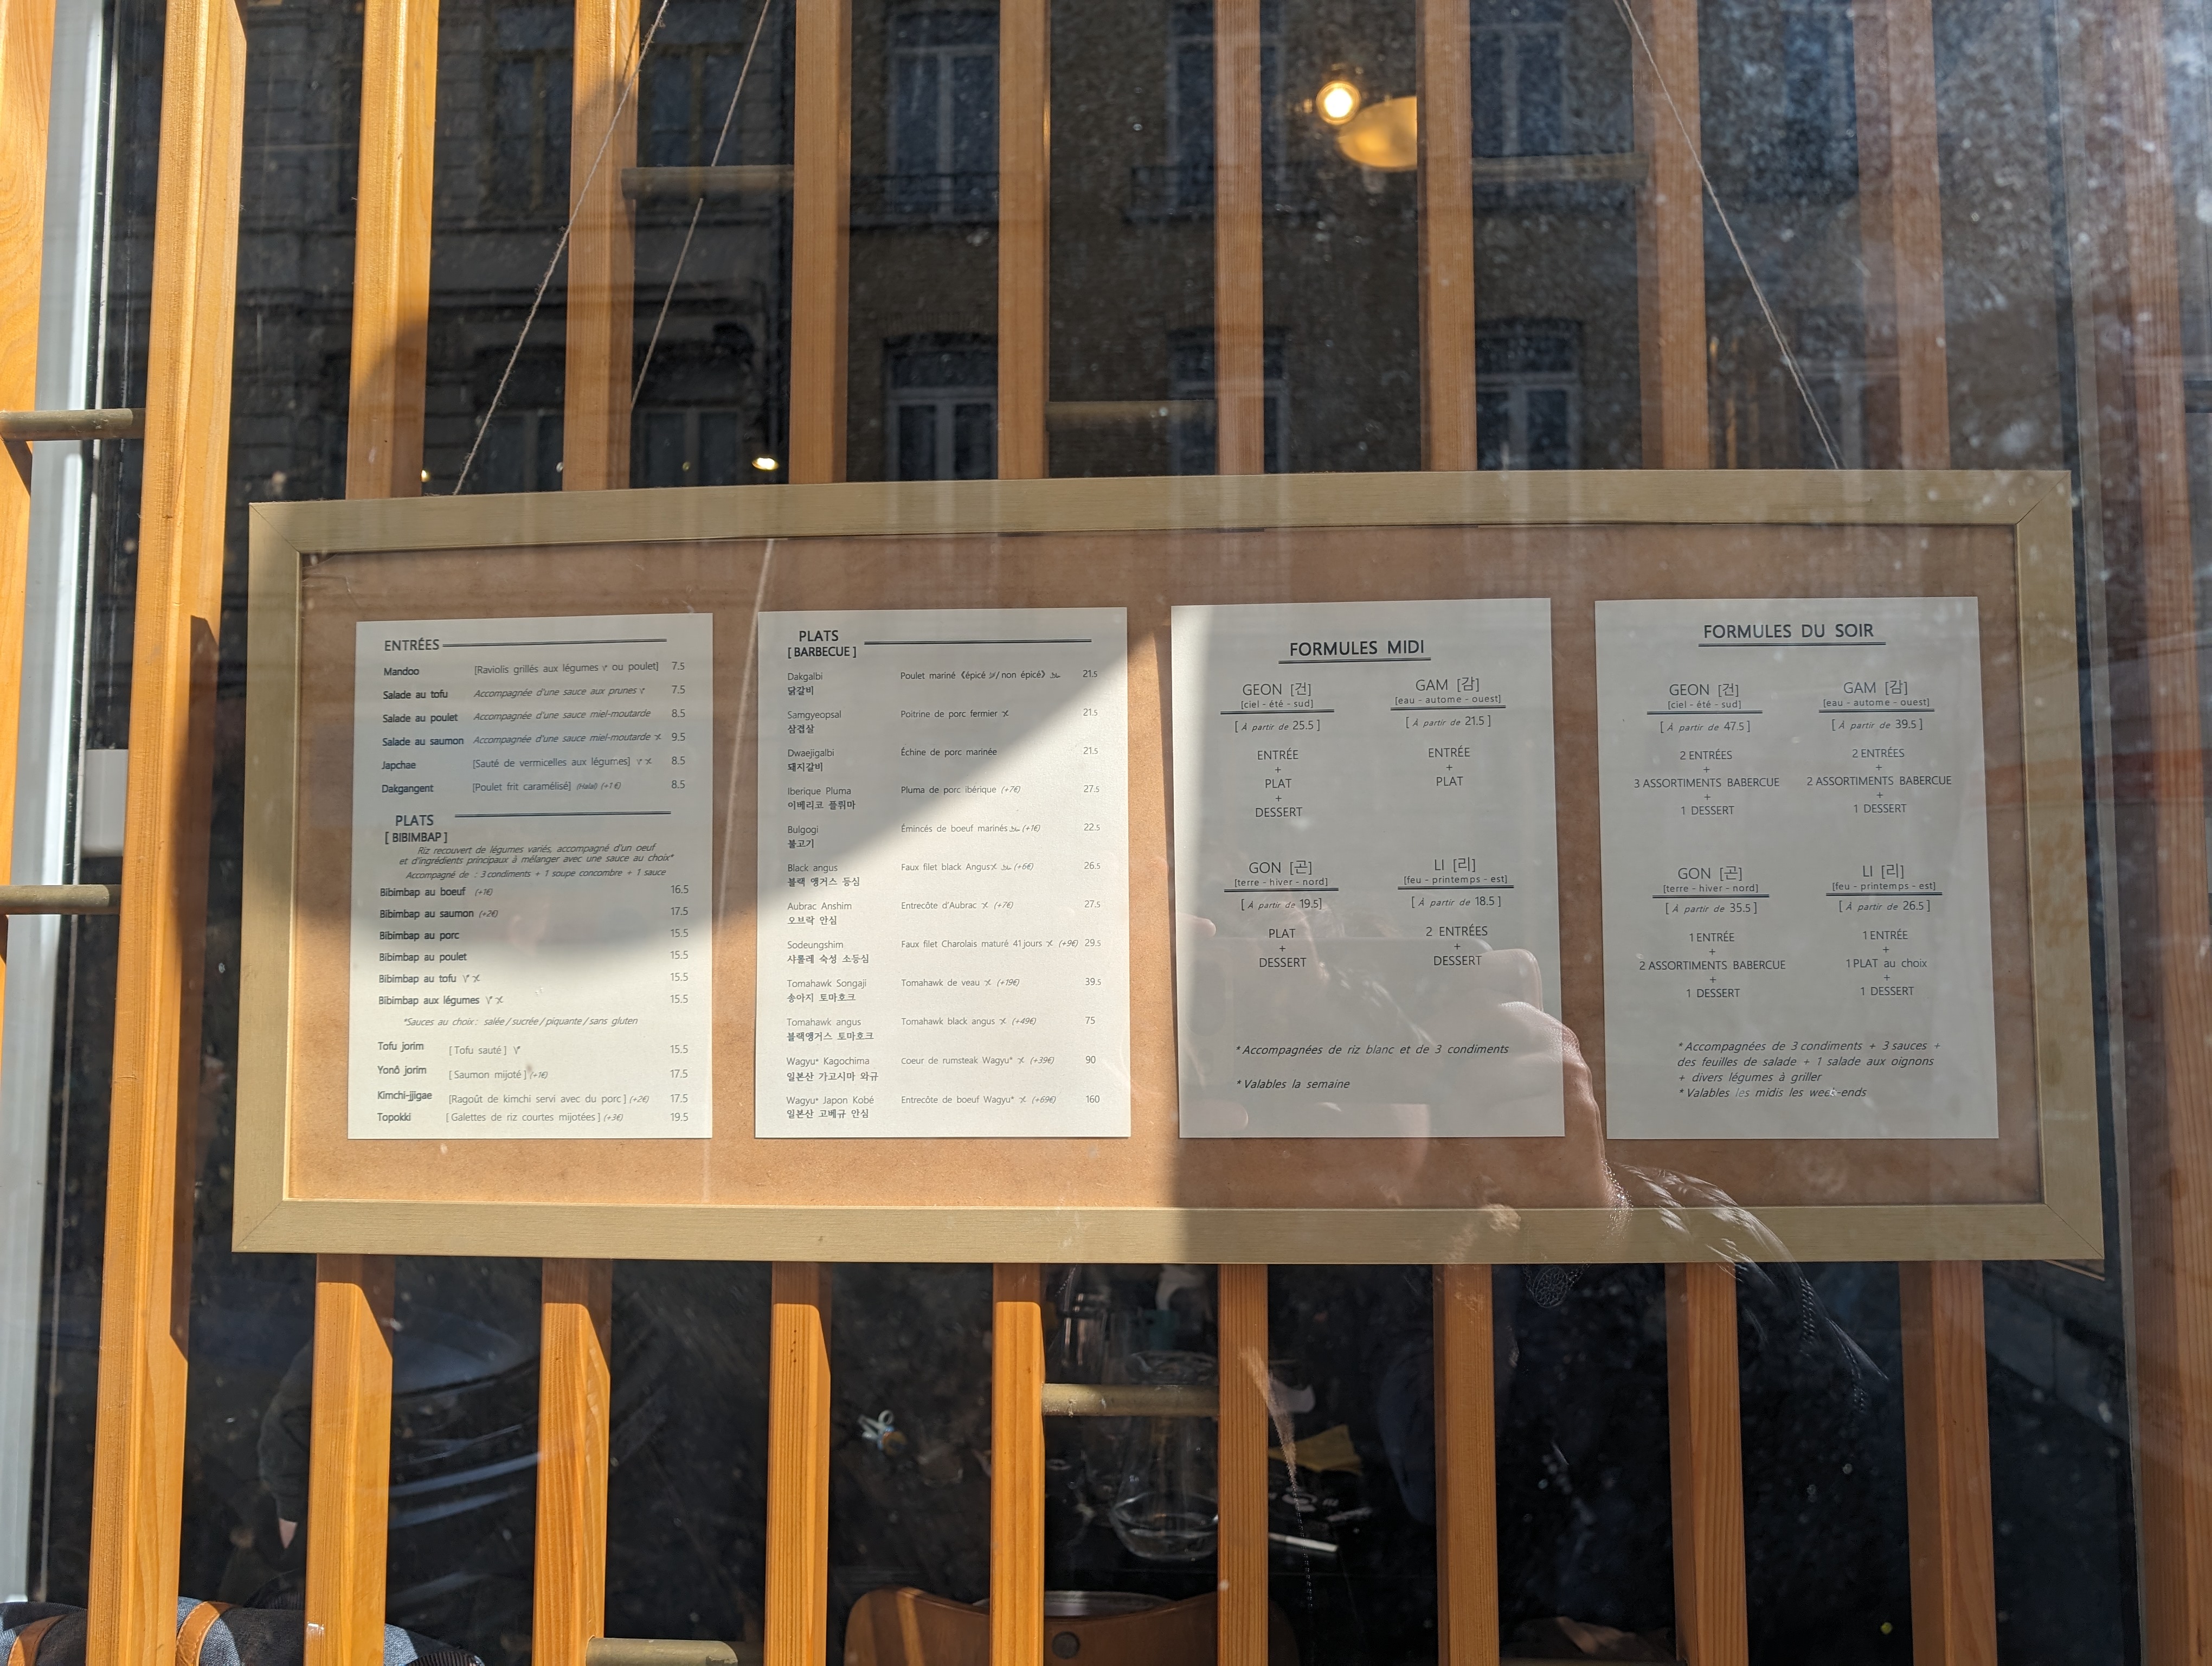 ENTRÉES
Mandoo [Raviolis grillés aux légumes ou poulet] 7.5
Salade au tofu Accompagnée d'une sauce aux prunes 7.5
Salade au poulet Accompagnée d'une sauce miel-moutarde 8.5
Salade au saumon Accompagnée d'une sauce miel-moutarde 9.5
Japchae [Sauté de vermicelles aux légumes] 8.5
Dakgangent [Poulet frit caramélisé] (Halal) (+1€) 8.5
PLATS
[ BIBIMBAP ]
Riz recouvert de légumes variés, accompagné d'un oeuf
et d'ingrédients principaux à mélanger avec une sauce au choix*
Accompagné de : 3 condiments + 1 soupe concombre + 1 sauce
Bibimbap au boeuf (+1€) 16.5
Bibimbap au saumon (+2€) 17.5
Bibimbap au porc 15.5
Bibimbap au poulet 15.5
Bibimbap au tofu 15.5
Bibimbap aux légumes 15.5
*Sauces au choix : salée / sucrée / piquante / sans gluten
Tofu jorim [ Tofu sauté ] 15.5
Yonô jorim [ Saumon mijoté ] (+1€) 17.5
Kimchi-jjigae [Ragoût de kimchi servi avec du porc ] (+2€) 17.5
Topokki [ Galettes de riz courtes mijotées ] (+3€) 19.5
PLATS
[ BARBECUE ]
Dakgalbi Poulet mariné (épicé / non épicé) 21.5
닭갈비
Samgyeopsal Poitrine de porc fermier 21.5
삼겹살
Dwaejigalbi Échine de porc marinée 21.5
돼지갈비
Iberique Pluma Pluma de porc ibérique (+7€) 27.5
이베리코 플뤼마
Bulgogi Émincés de boeuf marinés (+1€) 22.5
불고기
Black angus Faux filet black Angus (+6€) 26.5
블랙 앵거스 등심
Aubrac Anshim Entrecôte d'Aubrac (+7€) 27.5
오브락 안심
Sodeungshim Faux filet Charolais maturé 41 jours (+9€) 29.5
샤롤레 숙성 소등심
Tomahawk Songaji Tomahawk de veau (+19€) 39.5
송아지 토마호크
Tomahawk angus Tomahawk black angus (+49€) 75
블랙앵거스 토마호크
Wagyu* Kagochima Coeur de rumsteak Wagyu* (+39€) 90
일본산 가고시마 와규
Wagyu* Japon Kobé Entrecôte de boeuf Wagyu* (+69€) 160
일본산 고베규 안심
FORMULES MIDI
GEON [건]
[ciel - été - sud]
[ À partir de 25.5 ]
ENTRÉE
+
PLAT
+
DESSERT
GAM [감]
[eau - autome - ouest]
[ À partir de 21.5 ]
ENTRÉE
+
PLAT
GON [곤]
[terre - hiver - nord]
[ À partir de 19.5]
PLAT
+
DESSERT
LI [리]
[feu - printemps - est]
[ À partir de 18.5 ]
2 ENTRÉES
+
DESSERT
* Accompagnées de riz blanc et de 3 condiments
* Valables la semaine
FORMULES DU SOIR
GEON [건]
[ciel - été - sud]
[ À partir de 47.5 ]
2 ENTRÉES
+
3 ASSORTIMENTS BABERCUE
+
1 DESSERT
GAM [감]
[eau - autome - ouest]
[ À partir de 39.5 ]
2 ENTRÉES
+
2 ASSORTIMENTS BABERCUE
+
1 DESSERT
GON [곤]
[terre - hiver - nord]
[ À partir de 35.5 ]
1 ENTRÉE
+
2 ASSORTIMENTS BABERCUE
+
1 DESSERT
LI [리]
[feu - printemps - est]
[ À partir de 26.5 ]
1 ENTRÉE
+
1 PLAT au choix
+
1 DESSERT
* Accompagnées de 3 condiments + 3 sauces +
des feuilles de salade + 1 salade aux oignons
+ divers légumes à griller
* Valables les midis les week-ends